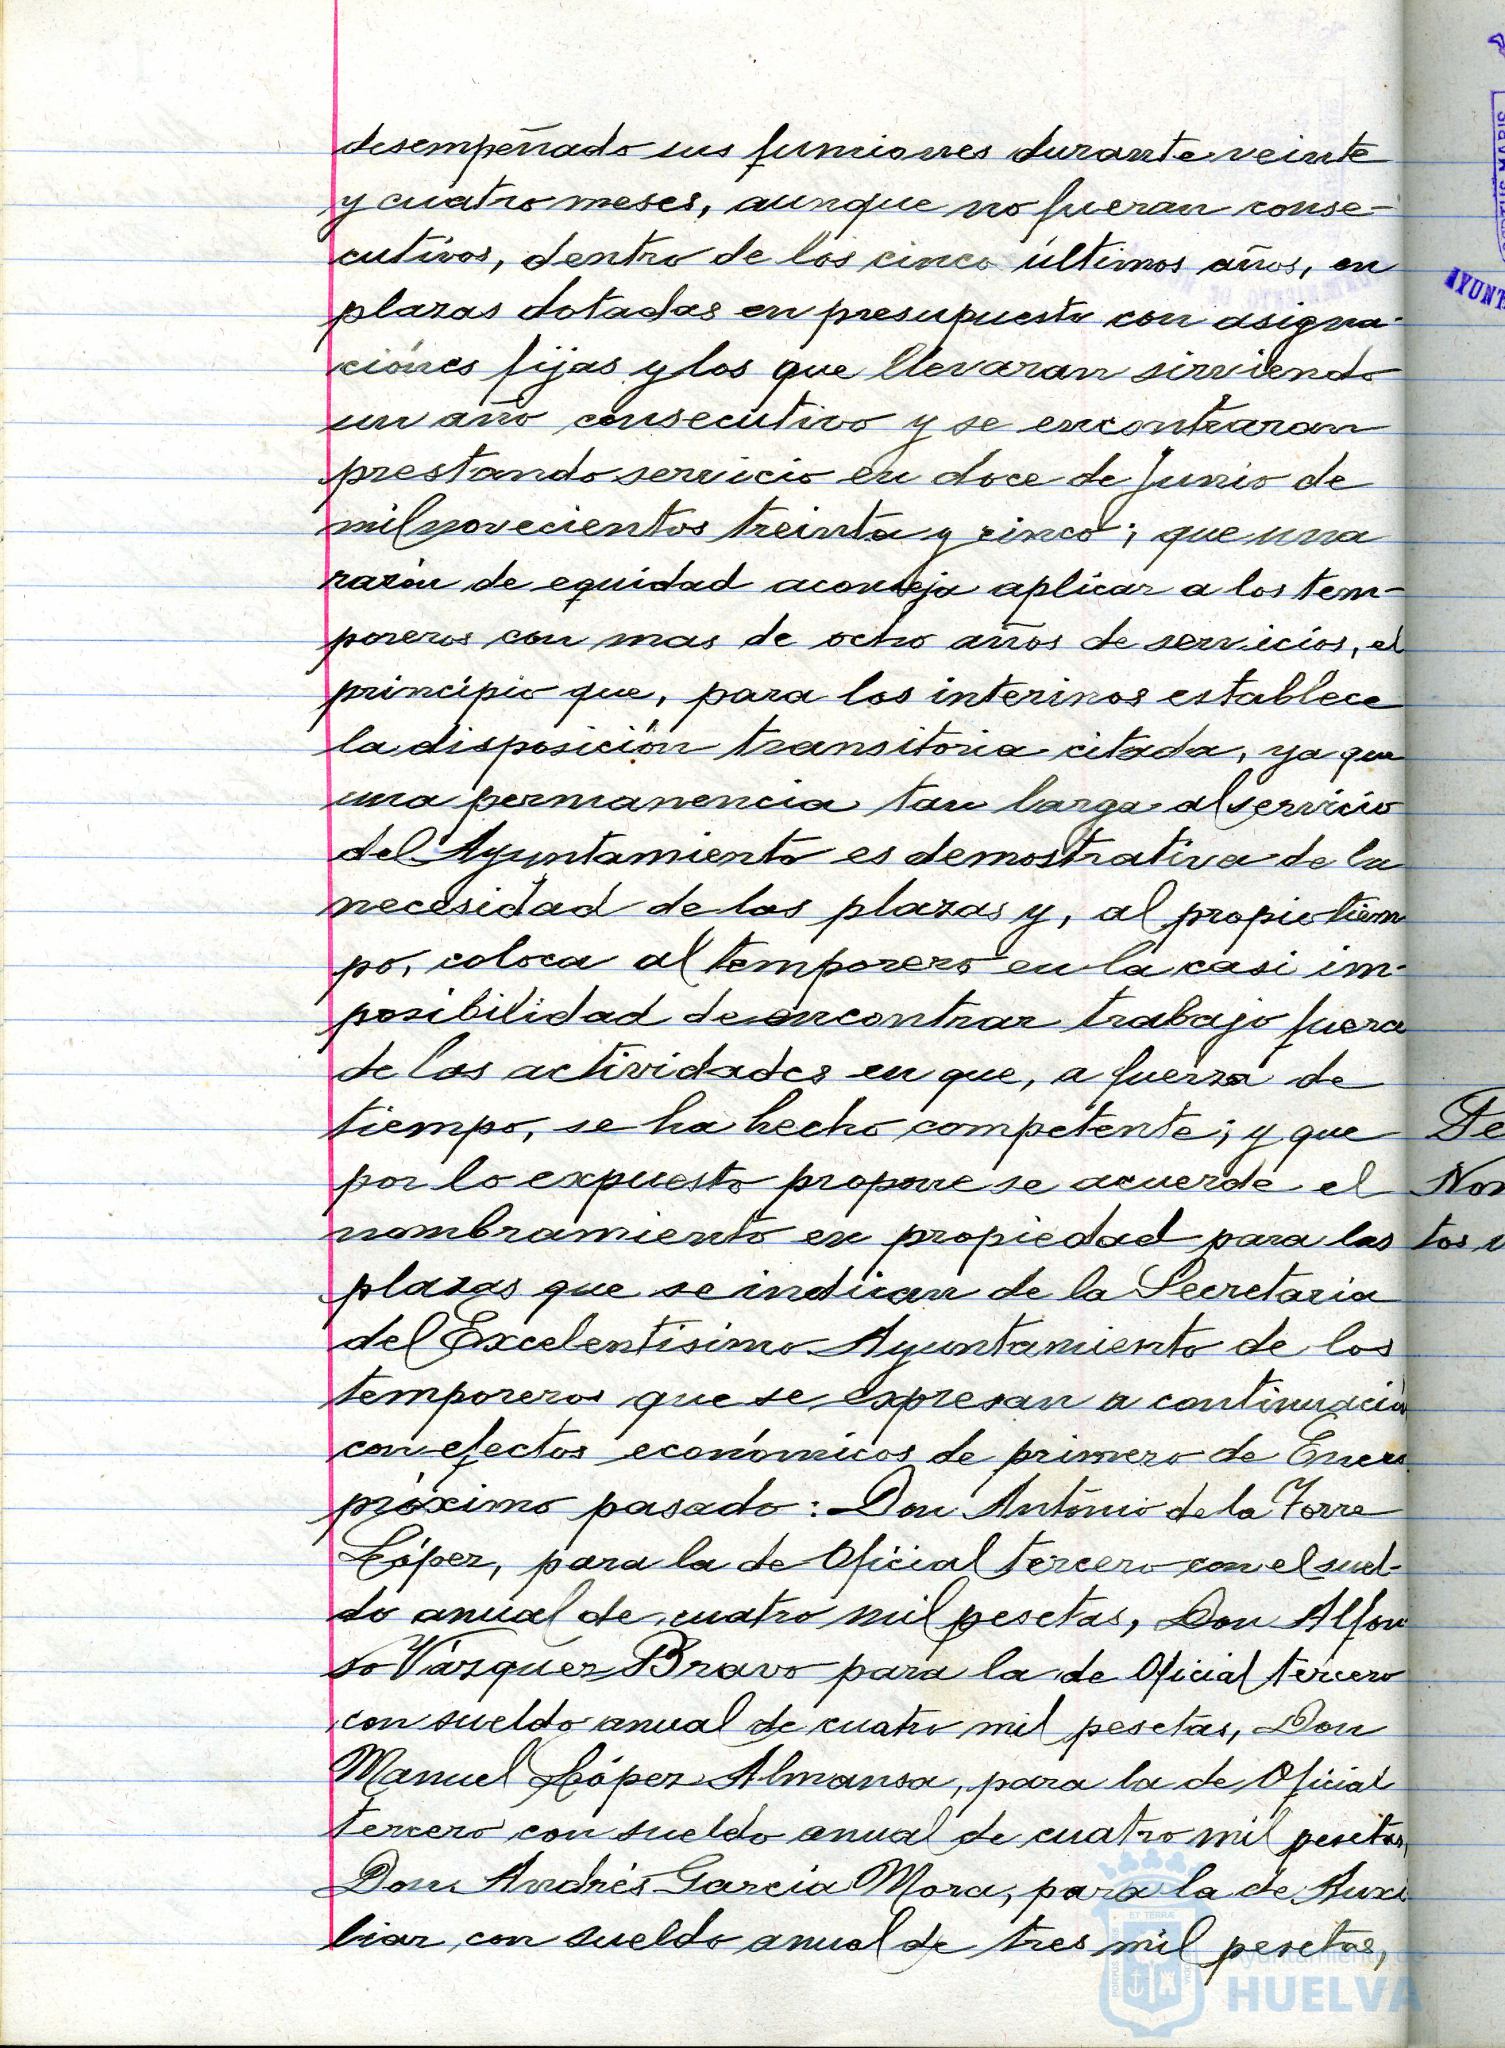 desempeñado sus funciones durante veinte
y cuatro meses, aunque no fueran conse-
cutivos, dentro de los cinco últimos años, en
plazas dotadas en presupuesto con asigna-
ciónes fijas y los que llevaran sirviendo
un año consecutivo y se encontraran
prestando servicio en doce de Junio de
mil novecientos treinta y cinco; que una
razón de equidad aconseja aplicar a los tem-
poreros con mas de ocho años de servicios, el
principio que, para los interinos establece
la disposición transitoria citada, ya que
una permanencia tan larga al servicio
del Ayuntamiento es demostrativa de la
necesidad de las plazas y, al propio tiem
po, coloca al temporero en la casi im-
posibilidad de encontrar trabajo fuera
de las actividades en que, a fuerza de
tiempo, se ha hecho competente; y que
por lo expuesto propone se acuerde el
nombramiento en propiedad para las
plazas que se indican de la Secretaria
del Excelentisimo Ayuntamiento de los
temporeros que se expresan a continuación
con efectos económicos de primero de Enero
próximo pasado: Don António de la Torre
López, para la de Oficial tercero con el suel-
do anual de cuatro mil pesetas, Don Alfon
so Vázquez Bravo para la de Oficial tercero
con sueldo anual de cuatro mil pesetas, Don
Manuel López Almansa, para la de Oficial
tercero con sueldo anual de cuatro mil pesetas,
Don Andrés Garcia Mora, para la de Auxi
liar con sueldo anual de tres mil pesetas,
Ayuntamiento de
HUELVA